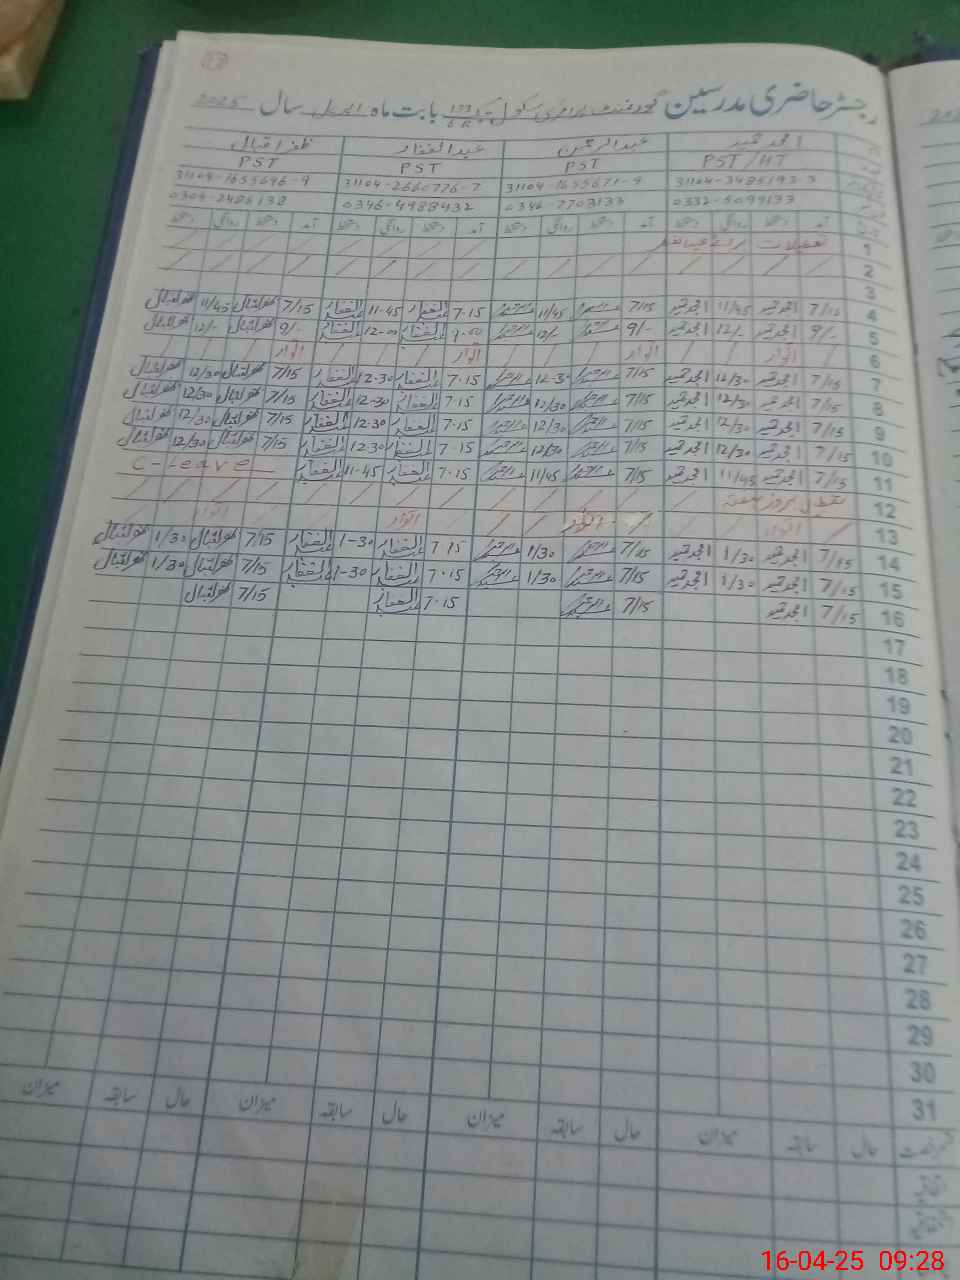 13
رجسٹر حاضری مدرسین گورنمنٹ پرائمری سکول بابت ماہ اپریل سال 2025
امجد حمید عبدالرحمن عبدالغفار ظفر اقبال
PST/HT PST PST PST
31104-3485193-3 31104-1655671-9 31104-2660776-7 31104-1655696-9
0332-5099133 0346-7703133 0346-4988432 0304-2486138
آمد دستخط روانگی دستخط آمد دستخط روانگی دستخط آمد دستخط روانگی دستخط آمد دستخط روانگی دستخط
1 تعطیلات
2
3
4 7/15 امجد حمید 11/45 امجد حمید 7/15 11/45 7-15 عبدالغفار 11-45 عبدالغفار 7/15 ظفر اقبال 11/45 ظفر اقبال
5 9/- امجد حمید 12/- امجد حمید 9/- 12/- 9-00 عبدالغفار 12-00 عبدالغفار 9/- ظفر اقبال 12/- ظفر اقبال
6 اتوار اتوار اتوار اتوار
7 7/15 امجد حمید 12/30 امجد حمید 7/15 12-30 7-15 عبدالغفار 12-30 عبدالغفار 7/15 ظفر اقبال 12/30 ظفر اقبال
8 7/15 امجد حمید 12/30 امجد حمید 7/15 12/30 7-15 عبدالغفار 12-30 عبدالغفار 7/15 ظفر اقبال 12/30 ظفر اقبال
9 7/15 امجد حمید 12/30 امجد حمید 7/15 12/30 7-15 عبدالغفار 12-30 عبدالغفار 7/15 ظفر اقبال 12/30 ظفر اقبال
10 7/15 امجد حمید 12/30 امجد حمید 7/15 12/30 7-15 عبدالغفار 12-30 عبدالغفار 7/15 ظفر اقبال 12/30 ظفر اقبال
11 7/15 امجد حمید 11/45 امجد حمید 7/15 11/45 7-15 عبدالغفار 11-45 عبدالغفار C-Leave
12 تعطیل بروز ہفتہ
13 اتوار اتوار اتوار اتوار
14 7/15 امجد حمید 1/30 امجد حمید 7/15 1/30 7-15 عبدالغفار 1-30 عبدالغفار 7/15 ظفر اقبال 1/30 ظفر اقبال
15 7/15 امجد حمید 1/30 امجد حمید 7/15 1/30 7-15 عبدالغفار 1-30 عبدالغفار 7/15 ظفر اقبال 1/30 ظفر اقبال
16 7/15 امجد حمید 7/15 7-15 عبدالغفار 7/15 ظفر اقبال
17
18
19
20
21
22
23
24
25
26
27
28
29
30
31
حال سابقہ میزان حال سابقہ میزان حال سابقہ میزان حال سابقہ میزان
16-04-25 09:28